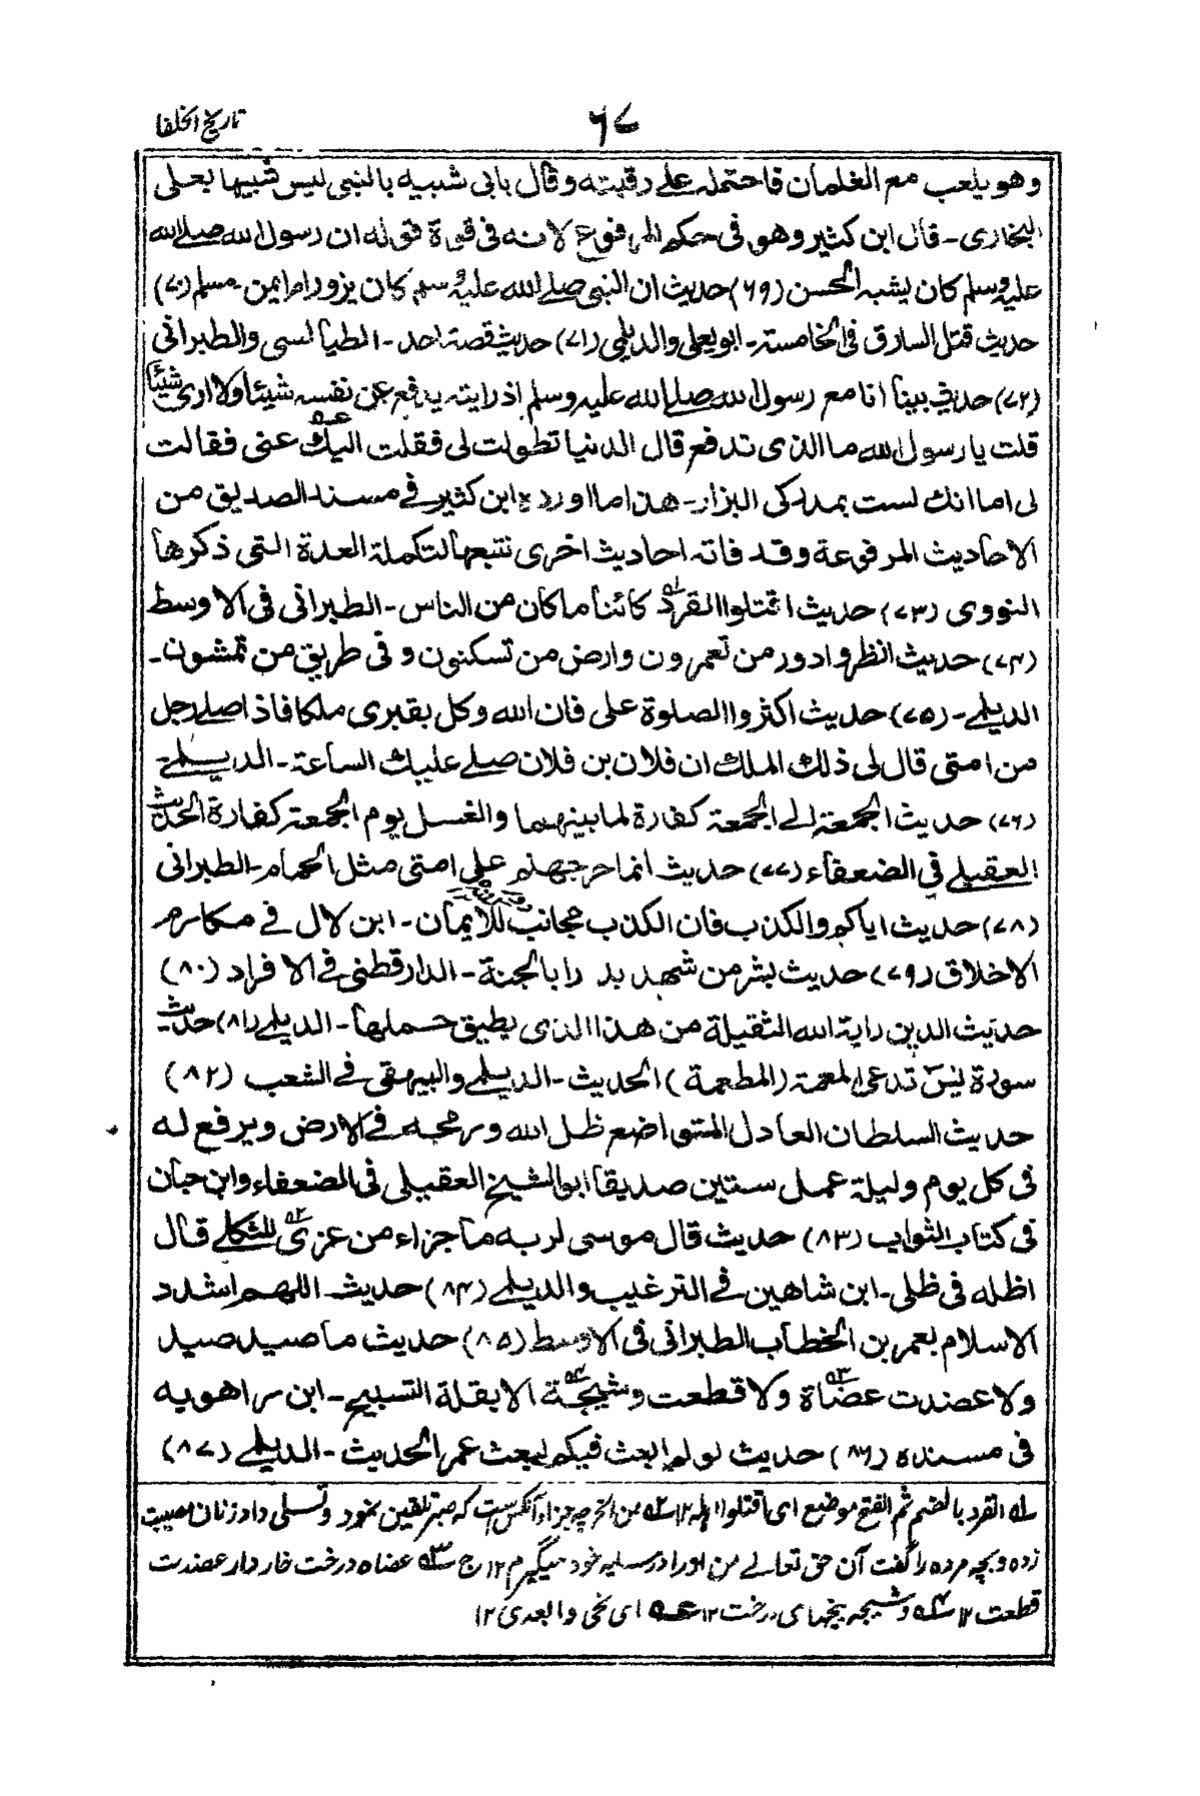 تاريخ الخلفا
٦٧
وهو يلعب مع الغلمان فاحتمله على رقبته وقال بابى شبيه بالنبى ليس شبيها بعلى
البخارى - قال ابن كثير وهو فى حكم المرفوع لانه فى قوة قوله ان رسول الله صلى الله
عليه وسلم كان يشبه الحسن (٦٩) حديث ان النبى صلى الله عليه وسلم كان يزور ام ايمن - مسلم (٧٠)
حديث قتل السارق فى الخامسة - ابو يعلى والديلمى (٧١) حديث قصة احد - الطيالسى والطبرانى
(٧٢) حديث بينا انا مع رسول الله صلى الله عليه وسلم اذ رايته يدفع عن نفسه شيئا ولا ارى شيئا
قلت يا رسول الله ما الذى تدفع قال الدنيا تطولت لى فقلت اليك عنى فقالت
لى اما انك لست بمدركى البزار - هذا ما اورده ابن كثير فى مسند الصديق من
الاحاديث المرفوعة وقد فاته احاديث اخرى نتبعها لتكملة العدة التى ذكرها
النووى (٧٣) حديث اقتلوا القرد كائنا ما كان من الناس - الطبرانى فى الاوسط
(٧٤) حديث انظروا دور من تعمرون وارض من تسكنون و فى طريق من تمشون -
الديلمى - (٧٥) حديث اكثروا الصلوة على فان الله وكل بقبرى ملكا فاذا صلى رجل
من امتى قال لى ذلك الملك ان فلان بن فلان صلى عليك الساعة - الديلمى -
(٧٦) حديث الجمعة الى الجمعة كفارة لما بينهما والغسل يوم الجمعة كفارة الحديث
العقيلى فى الضعفاء (٧٧) حديث انما حر جهنم على امتى مثل الحمام - الطبرانى
(٧٨) حديث اياكم والكذب فان الكذب مجانب للايمان - ابن لال فى مكارم
الاخلاق (٧٩) حديث بشر من شهد بدرا بالجنة - الدارقطنى فى الافراد (٨٠)
حديث الدين راية الله الثقيلة من هذا الذى يطيق حملها - الديلمى (٨١) حديث
سورة يس تدعى المعمة (المطعمة) الحديث - الديلمى والبيهقى فى الشعب (٨٢)
حديث السلطان العادل المتواضع ظل الله ورمحه فى الارض ويرفع له
فى كل يوم وليلة عمل ستين صديقا ابو الشيخ العقيلى فى الضعفاء وابن حبان
فى كتاب الثواب (٨٣) حديث قال موسى لربه ما جزاء من عزى الثكلى قال
اظله فى ظلى - ابن شاهين فى الترغيب والديلمى (٨٤) حديث اللهم اشدد
الاسلام بعمر بن الخطاب الطبرانى فى الاوسط (٨٥) حديث ما صيد صيد
ولا عضدت عضاة ولا قطعت وشيجة الا بقلة التسبيح - ابن راهويه
فى مسنده (٨٦) حديث لو لم ابعث فيكم لبعث عمر الحديث - الديلمى (٨٧)
له القرد بالضم ثم الفتح موضع اى اقتلوا اهله ١٢ من الخ چه جزاء آنكس ست كه صبر تلقين نمود و تسلى داد زنان مصيبت
زده و بچه مرده را گفت آن حق تعالى من او را در سايه خود ميگيرم ١٢ عضاه درخت خاردار عضدت
قطعت ١٢ وشيجه بيخهاى درخت ١٢ عه اى نحى وابعدى ١٢